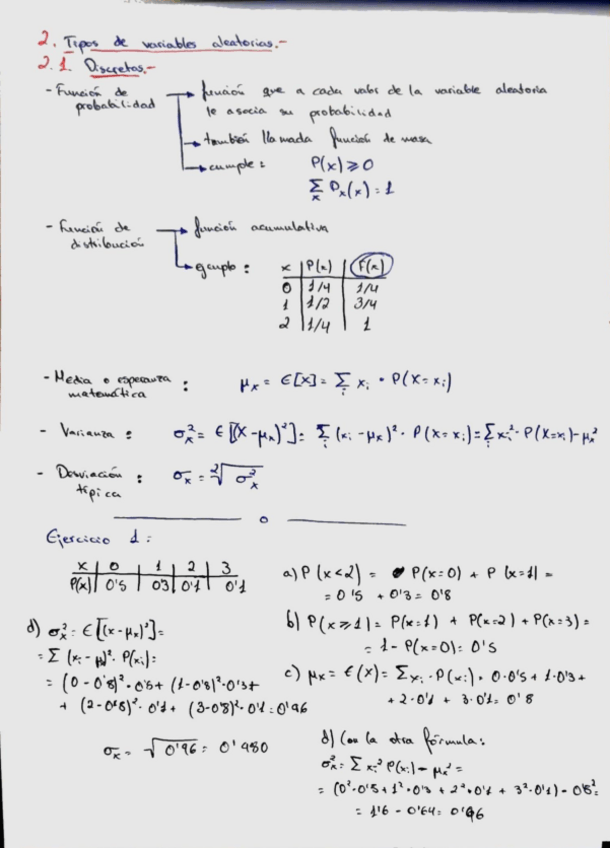 2. Tipos de variables aleatorias.-
2.1. Discretas.-
- Función de probabilidad → función que a cada valor de la variable aleatoria
le asocia su probabilidad
→ también llamada función de masa
→ cumple: P(x) ≥ 0
∑x Px(x) = 1
- Función de distribución → función acumulativa
→ ejemplo: x | P(x) | F(x)
0 | 1/4 | 1/4
1 | 1/2 | 3/4
2 | 1/4 | 1
- Media o esperanza matemática: μx = E[x] = ∑i xi · P(X=xi)
- Varianza: σx² = E[(X-μx)²] = ∑i (xi - μx)² · P(X=xi) = ∑ xi² · P(X=xi) - μx²
- Desviación típica: σx = ²√σx²
Ejercicio 1:
x | 0 | 1 | 2 | 3
P(x) | 0'5 | 03 | 0'1 | 0'1
a) P(x<2) = P(x=0) + P(x=1) =
= 0'5 + 0'3 = 0'8
b) P(x≥1) = P(x=1) + P(x=2) + P(x=3) =
= 1 - P(x=0) = 0'5
c) μx = E(x) = ∑xi · P(xi) = 0·0'5 + 1·0'3 +
+ 2·0'1 + 3·0'1 = 0'8
d) σx² = E[(x-μx)²] =
= ∑ (xi - μ)² · P(xi) =
= (0-0'8)² · 0'5 + (1-0'8)² · 0'3 +
+ (2-0'8)² · 0'1 + (3-0'8)² · 0'1 = 0'96
σx = √0'96 = 0'980
d) Con la otra fórmula:
σx² = ∑ xi² P(xi) - μx² =
= (0²·0'5 + 1²·0'3 + 2²·0'1 + 3²·0'1) - 0'8² =
= 1'6 - 0'64 = 0'96